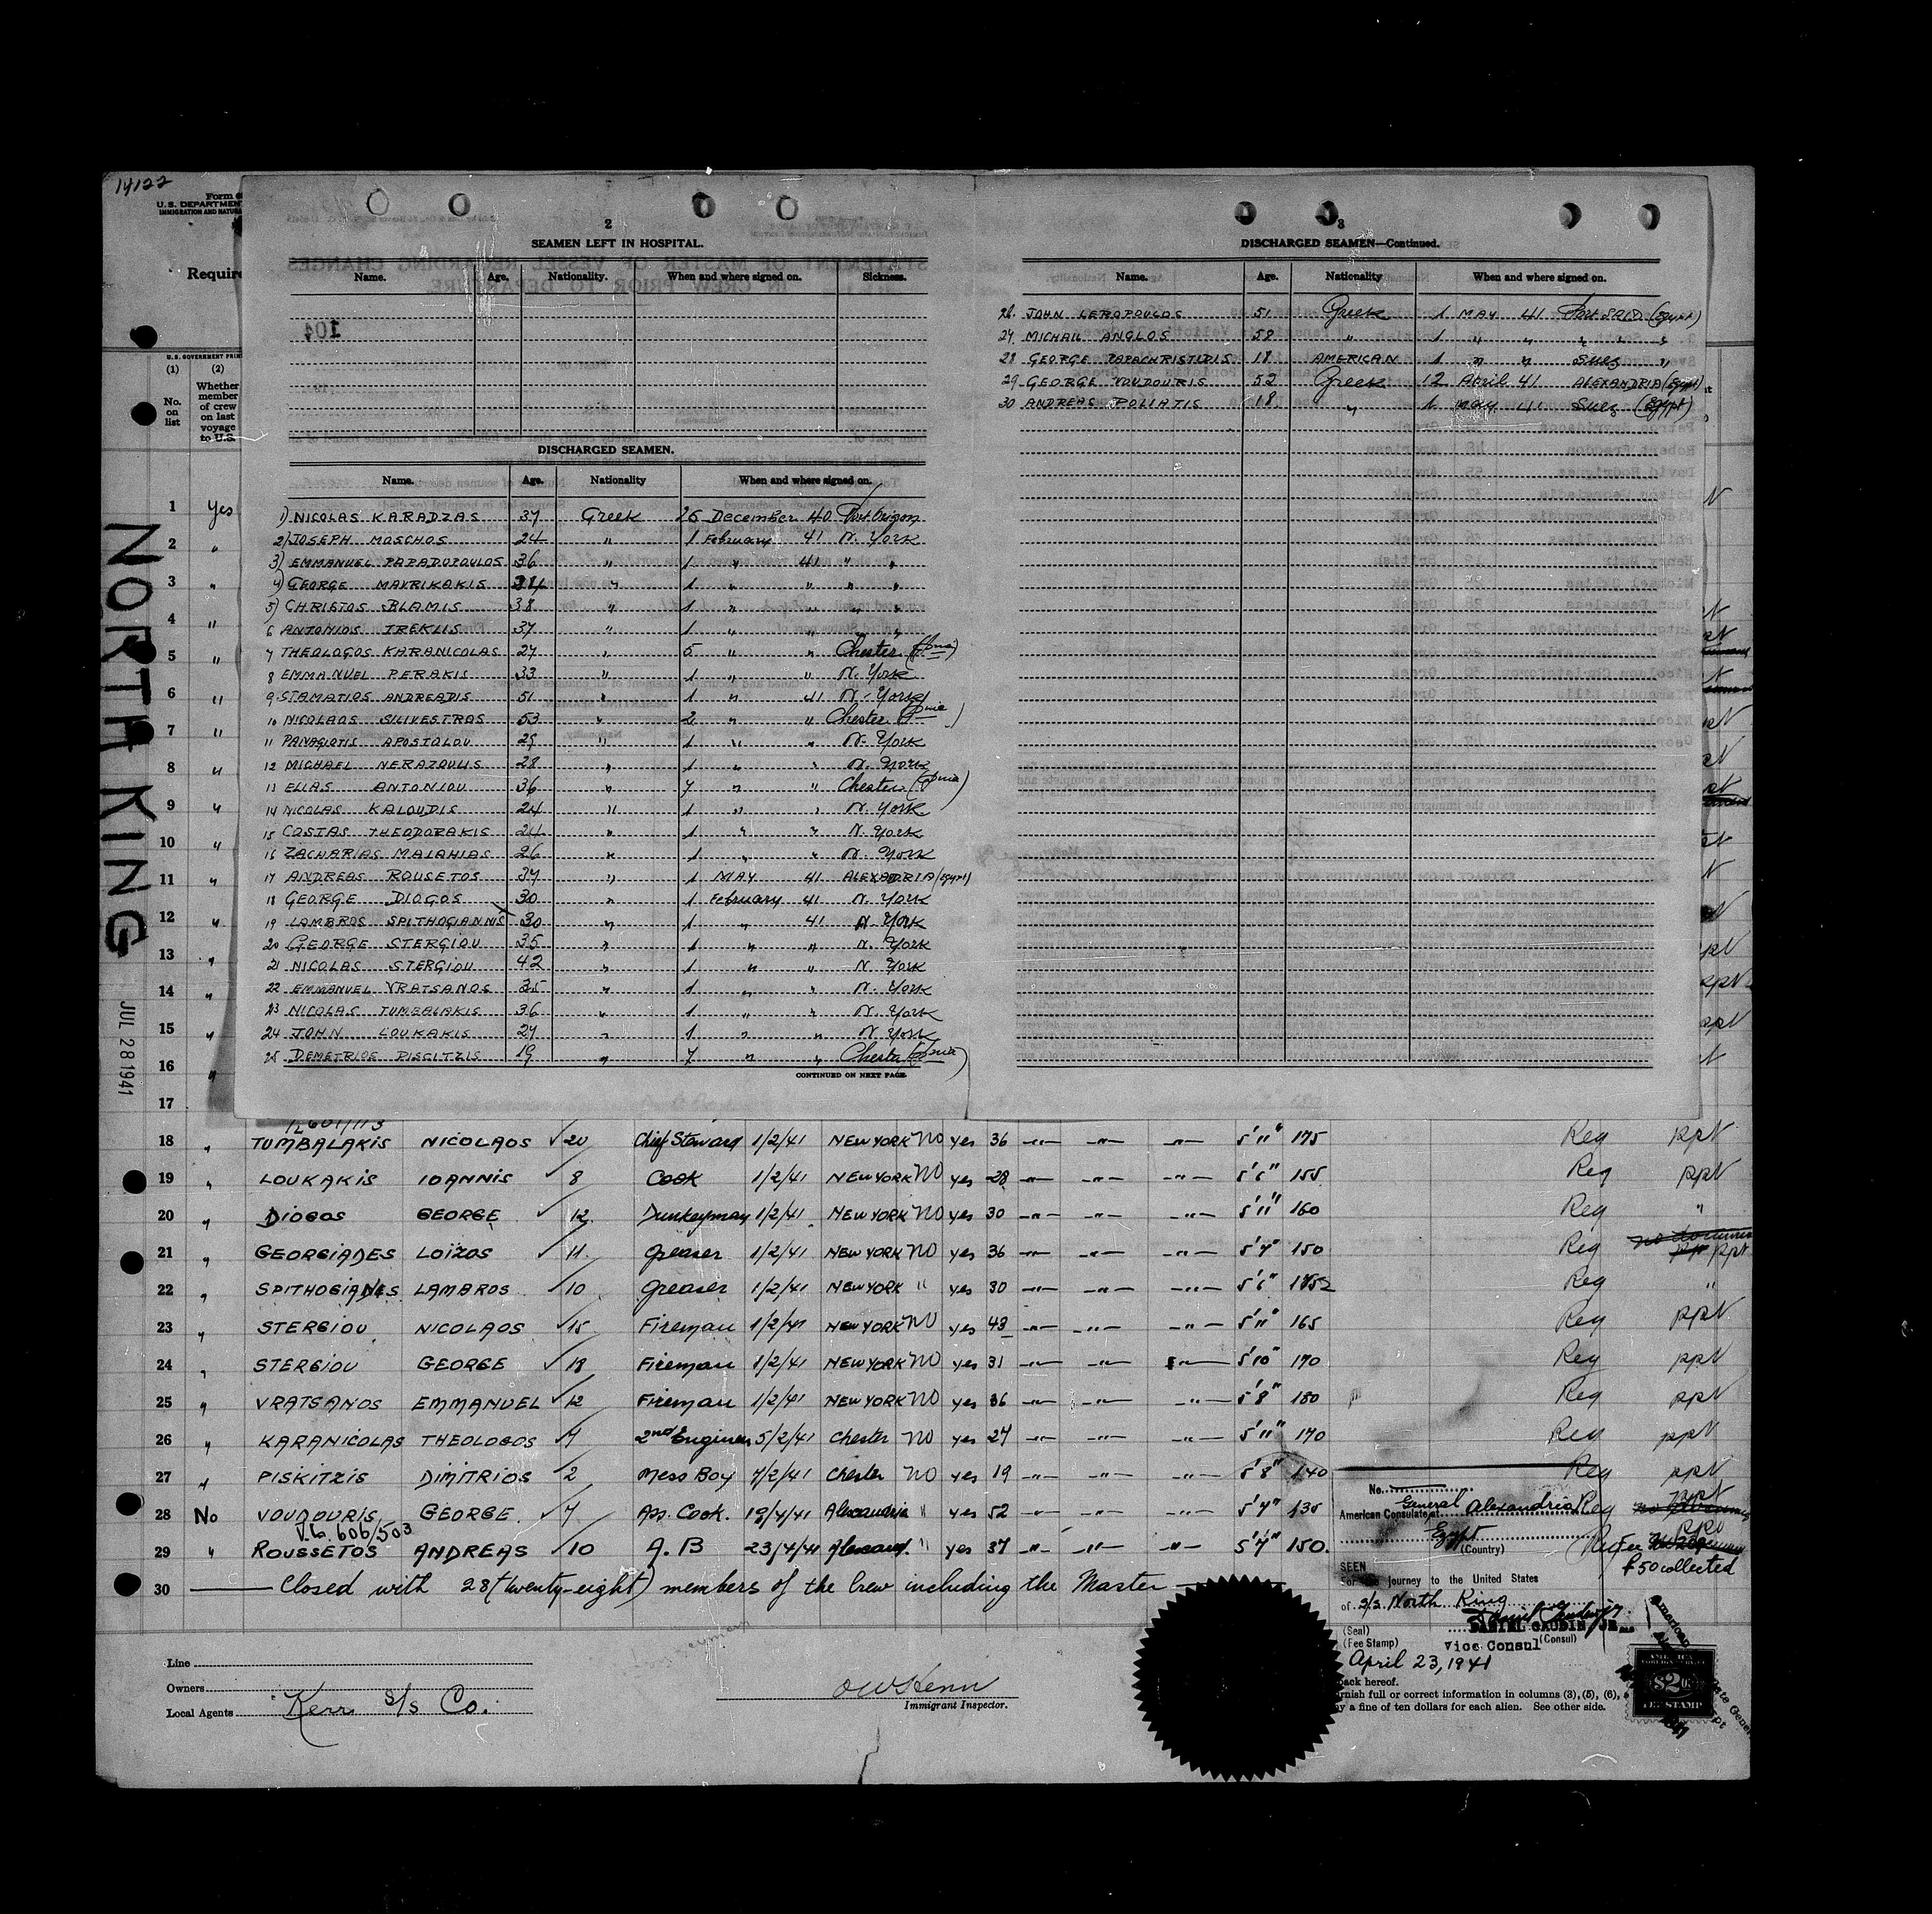 14122
Form
U. S. DEPARTMEN
IMMIGRATION AND NATURA
Require
U. S. GOVERNMENT PRIN
(1) (2)
No. on list
Whether member of crew on last voyage to U.S.
NORTH KING
JUL 28 1941
2
SEAMEN LEFT IN HOSPITAL.
Name. Age. Nationality. When and where signed on. Sickness.
104
DISCHARGED SEAMEN.
Name. Age. Nationality When and where signed on.
1) NICOLAS KARADZAS 37 Greek 26 December 40
2) JOSEPH MOSCHOS 24 " 1 February 41 N. York
3) EMMANUEL PAPADOPOULOS 36 " 1 " 41 " "
4) GEORGE MAVRIKAKIS 34 " 1 " " " "
5) CHRISTOS BLAMIS 38 " 1 " " " "
6 ANTONIOS TREKLIS 37 " 1 " " " "
7 THEOLOGOS KARANICOLAS 27 " 5 " " Chester
8 EMMANUEL PERAKIS 33 " 1 " " N. York
9 STAMATIOS ANDREADIS 51 " 1 " 41 N. York
10 NICOLAOS SILIVESTROS 53 " 2 " " Chester
11 PANAGIOTIS APOSTOLOU 29 " 1 " " N. York
12 MICHAEL NERAZOULIS 28 " 1 " " N. York
13 ELIAS ANTONIOU 36 " 7 " " Chester
14 NICOLAS KALOUDIS 24 " 1 " " N. York
15 COSTAS THEODORAKIS 24 " 1 " " N. York
16 ZACHARIAS MALAHIAS 26 " 1 " " N. York
17 ANDREAS ROUSETOS 37 " 1 MAY 41 ALEXADRIA (Egypt)
18 GEORGE DIOGOS 30 " 1 February 41 N. York
19 LAMBROS SPITHOGIANNIS 30 " 1 " 41 N. York
20 GEORGE STERGIOU 35 " 1 " " N. York
21 NICOLAS STERGIOU 42 " 1 " " N. York
22 EMMANUEL VRATSANOS 35 " 1 " " N. York
23 NICOLAS TUMBALAKIS 36 " 1 " " N. York
24 JOHN LOUKAKIS 27 " 1 " " N. York
25 DEMETRIOS PISCITZIS 19 " 7 " " Chester
CONTINUED ON NEXT PAGE.
3
DISCHARGED SEAMEN—Continued.
Name. Age. Nationality When and where signed on.
26. JOHN LEROPOULOS 51 Greek 1 MAY 41 Port SAID (Egypt)
27 MICHAIL ANGLOS 58 " 1 " " " " "
28 GEORGE PAPACHRISTIDIS 18 AMERICAN 1 " " Suez "
29 GEORGE VOUDOURIS 52 Greek 12 April 41 ALEXANDRIA (Egypt)
30 ANDREAS POLIATIS 18 " 1 May 41 Suez (Egypt)
1 Yes
2 "
3 "
4 "
5 "
6 "
7 "
8 "
9 "
10 "
11 "
12 "
13 "
14 "
15 "
16 "
17
18 " TUMBALAKIS NICOLAOS 20 Chief Steward 1/2/41 NEW YORK NO yes 36 —"— —"— —"— 5'11" 175 Reg ppt
19 " LOUKAKIS IOANNIS 8 Cook 1/2/41 NEW YORK NO yes 28 —"— —"— —"— 5'6" 155 Reg ppt
20 " DIOGOS GEORGE 12 Dunkeyman 1/2/41 NEW YORK NO yes 30 —"— —"— —"— 5'11" 160 Reg "
21 " GEORGIADES LOIZOS 11 Greaser 1/2/41 NEW YORK NO yes 36 —"— —"— —"— 5'7" 150 Reg ppt
22 " SPITHOGIANIS LAMBROS 10 Greaser 1/2/41 NEW YORK " yes 30 —"— —"— —"— 5'6" Reg "
23 " STERGIOU NICOLAOS 15 Fireman 1/2/41 NEW YORK NO yes 43 —"— —"— —"— 5'11" 165 Reg ppt
24 " STERGIOU GEORGE 18 Fireman 1/2/41 NEW YORK NO yes 31 —"— —"— —"— 5'10" 170 Reg ppt
25 " VRATSANOS EMMANUEL 12 Fireman 1/2/41 NEW YORK NO yes 36 —"— —"— —"— 5'8" 180 Reg ppt
26 " KARANICOLAS THEOLOGOS 9 2nd Engineer 5/2/41 Chester NO yes 27 —"— —"— —"— 5'11" 170 Reg ppt
27 " PISKITZIS DIMITRIOS 2 Mess Boy 7/2/41 Chester NO yes 19 —"— —"— —"— 5'8" 140 Reg ppt
28 No VOUDOURIS GEORGE 7 Ass. Cook. 19/4/41 Alexandria " yes 52 —"— —"— —"— 5'7" 135 Reg ppt
606/503
29 " ROUSSETOS ANDREAS 10 A.B 23/4/41 Alexand. " yes 37 —"— —"— —"— 5'7" 150
30 Closed with 28 (twenty-eight) members of the Crew including the Master
No.
American Consulate General at Alexandria
Egypt
(Country)
SEEN
For the journey to the United States
of s/s North King
DANIEL GAUDIN, JR.
(Seal) Vice Consul (Consul)
(Fee Stamp)
April 23, 1941
$50 collected
back hereof.
rnish full or correct information in columns (3), (5), (6),
y a fine of ten dollars for each alien. See other side.
Line
Owners
Local Agents Kerr s/s Co.
Immigrant Inspector.
$2
FEE STAMP